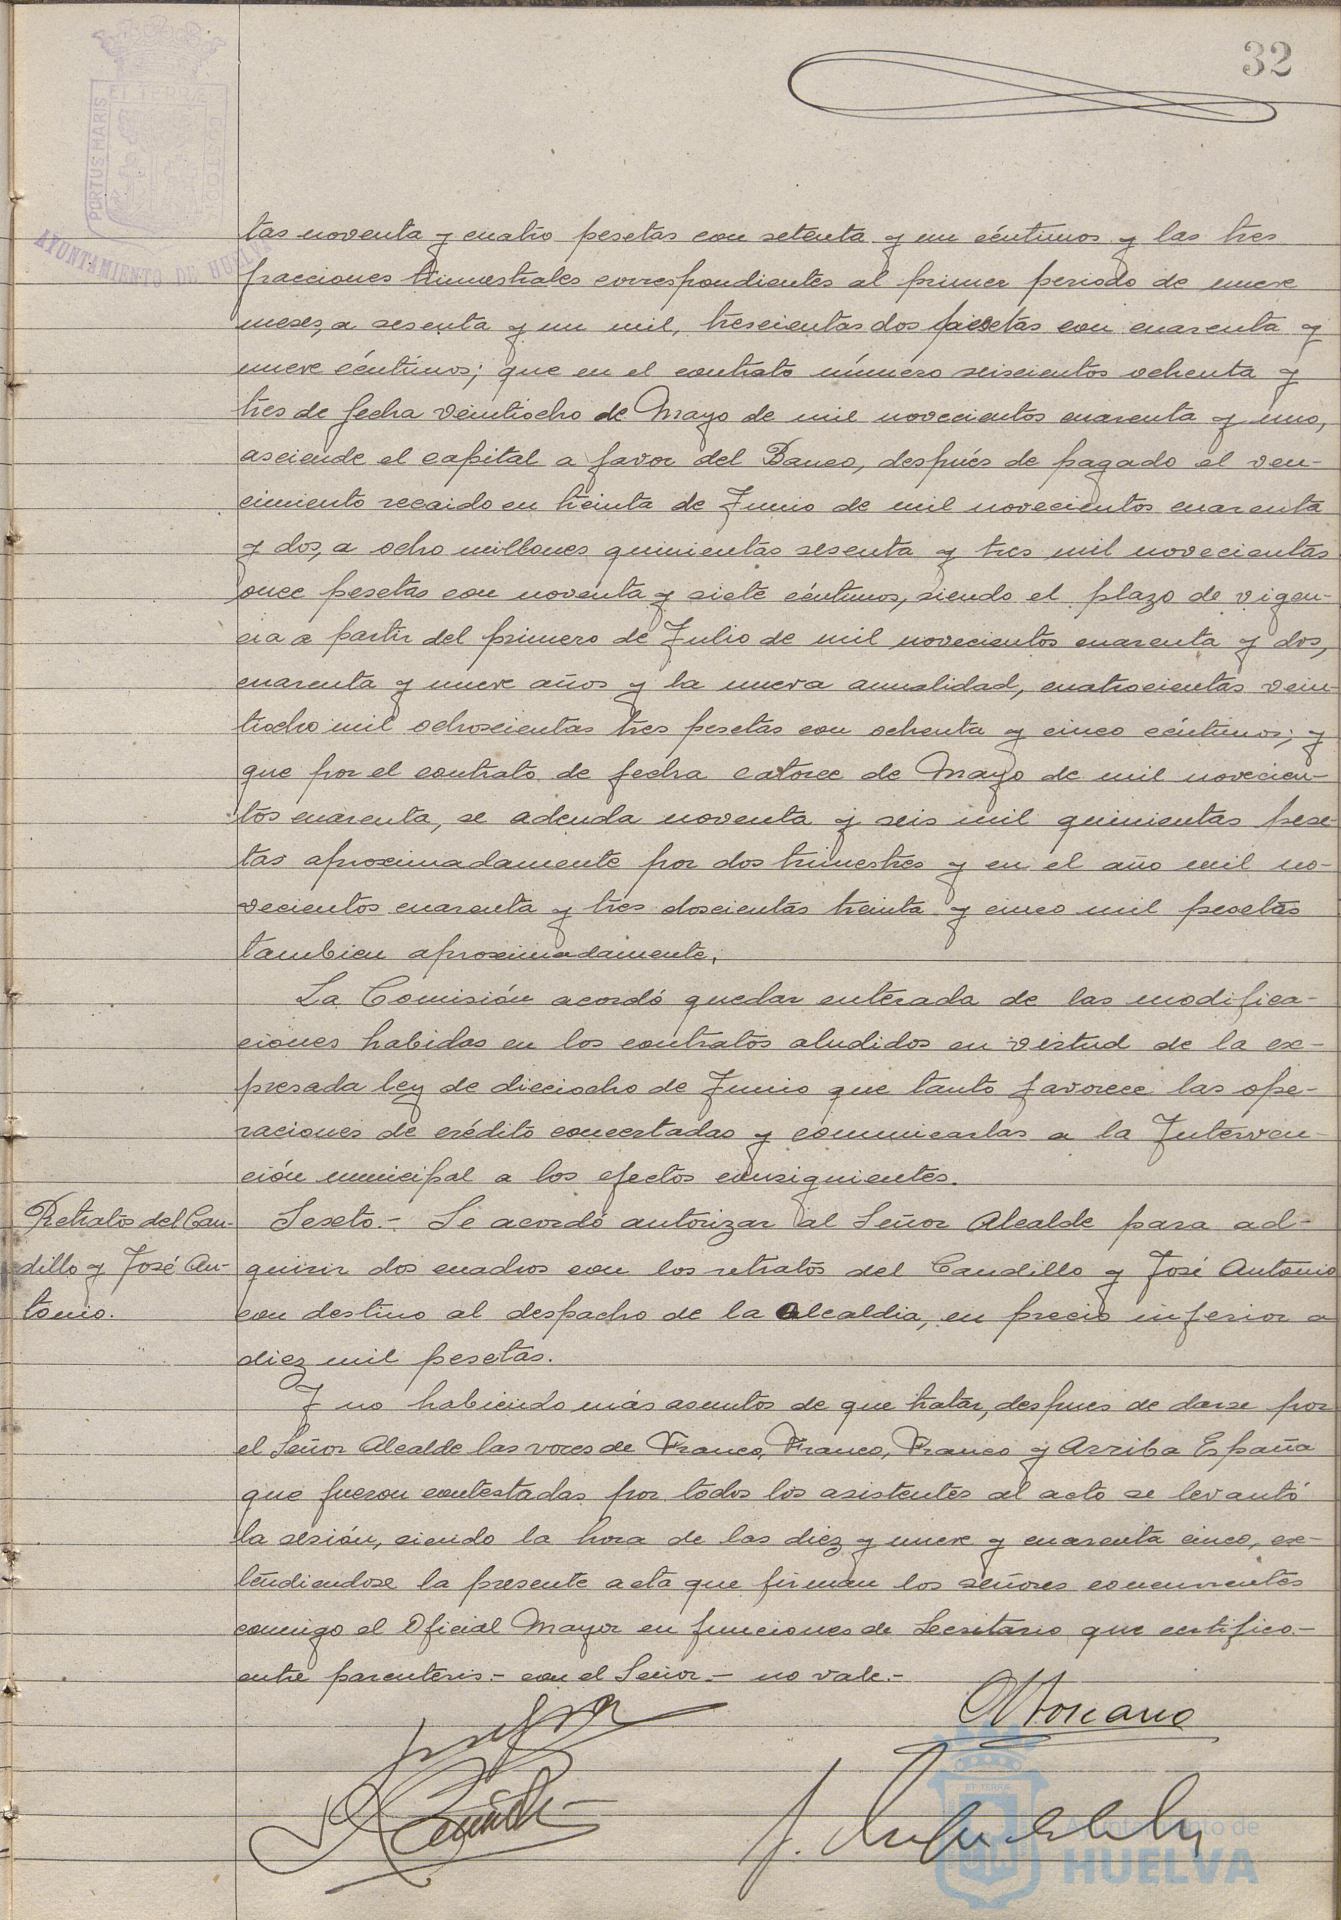 32
ET TERRÆ
PORTUS MARIS
CUSTODIA
AYUNTAMIENTO DE HUELVA
tas noventa y cuatro pesetas con setenta y un céntimos y las tres
fracciones trimestrales correspondientes al primer periodo de nueve
meses, a sesenta y un mil, trescientas dos pesetas con cuarenta y
nueve céntimos; que en el contrato número seiscientos ochenta y
tres de fecha veintiocho de Mayo de mil novecientos cuarenta y uno,
asciende el capital a favor del Banco, después de pagado el ven-
cimiento recaido en treinta de Junio de mil novecientos cuarenta
y dos, a ocho millones quinientas sesenta y tres mil novecientas
once pesetas con noventa y siete céntimos, siendo el plazo de vigen-
cia a partir del primero de Julio de mil novecientos cuarenta y dos,
cuarenta y nueve años y la nueva anualidad, cuatrocientas vein-
tiocho mil ochoscientas tres pesetas con ochenta y cinco céntimos; y
que por el contrato de fecha catorce de Mayo de mil novecien-
tos cuarenta, se adeuda noventa y seis mil quinientas pese-
tas aproximadamente por dos trimestres y en el año mil no-
vecientos cuarenta y tres doscientas treinta y cinco mil pesetas
tambien aproximadamente.
La Comisión acordó quedar enterada de las modifica-
ciones habidas en los contratos aludidos en virtud de la ex-
presada ley de dieciocho de Junio que tanto favorece las ope-
raciones de crédito concertadas y comunicarlas a la Interven-
ción municipal a los efectos consiguientes.
Retratos del Cau-
dillo y José An-
tonio.
Sexto.- Se acordó autorizar al Señor Alcalde para ad-
quirir dos cuadros con los retratos del Caudillo y José Antonio
con destino al despacho de la Alcaldia, en precio inferior a
diez mil pesetas.
Y no habiendo más asuntos de que tratar, despues de darse por
el Señor Alcalde las voces de Franco, Franco, Franco y Arriba España
que fueron contestadas por todos los asistentes al acto se levantó
la sesión, siendo la hora de las diez y nueve y cuarenta cinco, ex-
tendiendose la presente acta que firman los señores concurrentes
conmigo el Oficial Mayor en funciones de Secretario que certifico.-
entre parentesis.- con el Señor.- no vale.-
ET TERRÆ
Ayuntamiento de
HUELVA